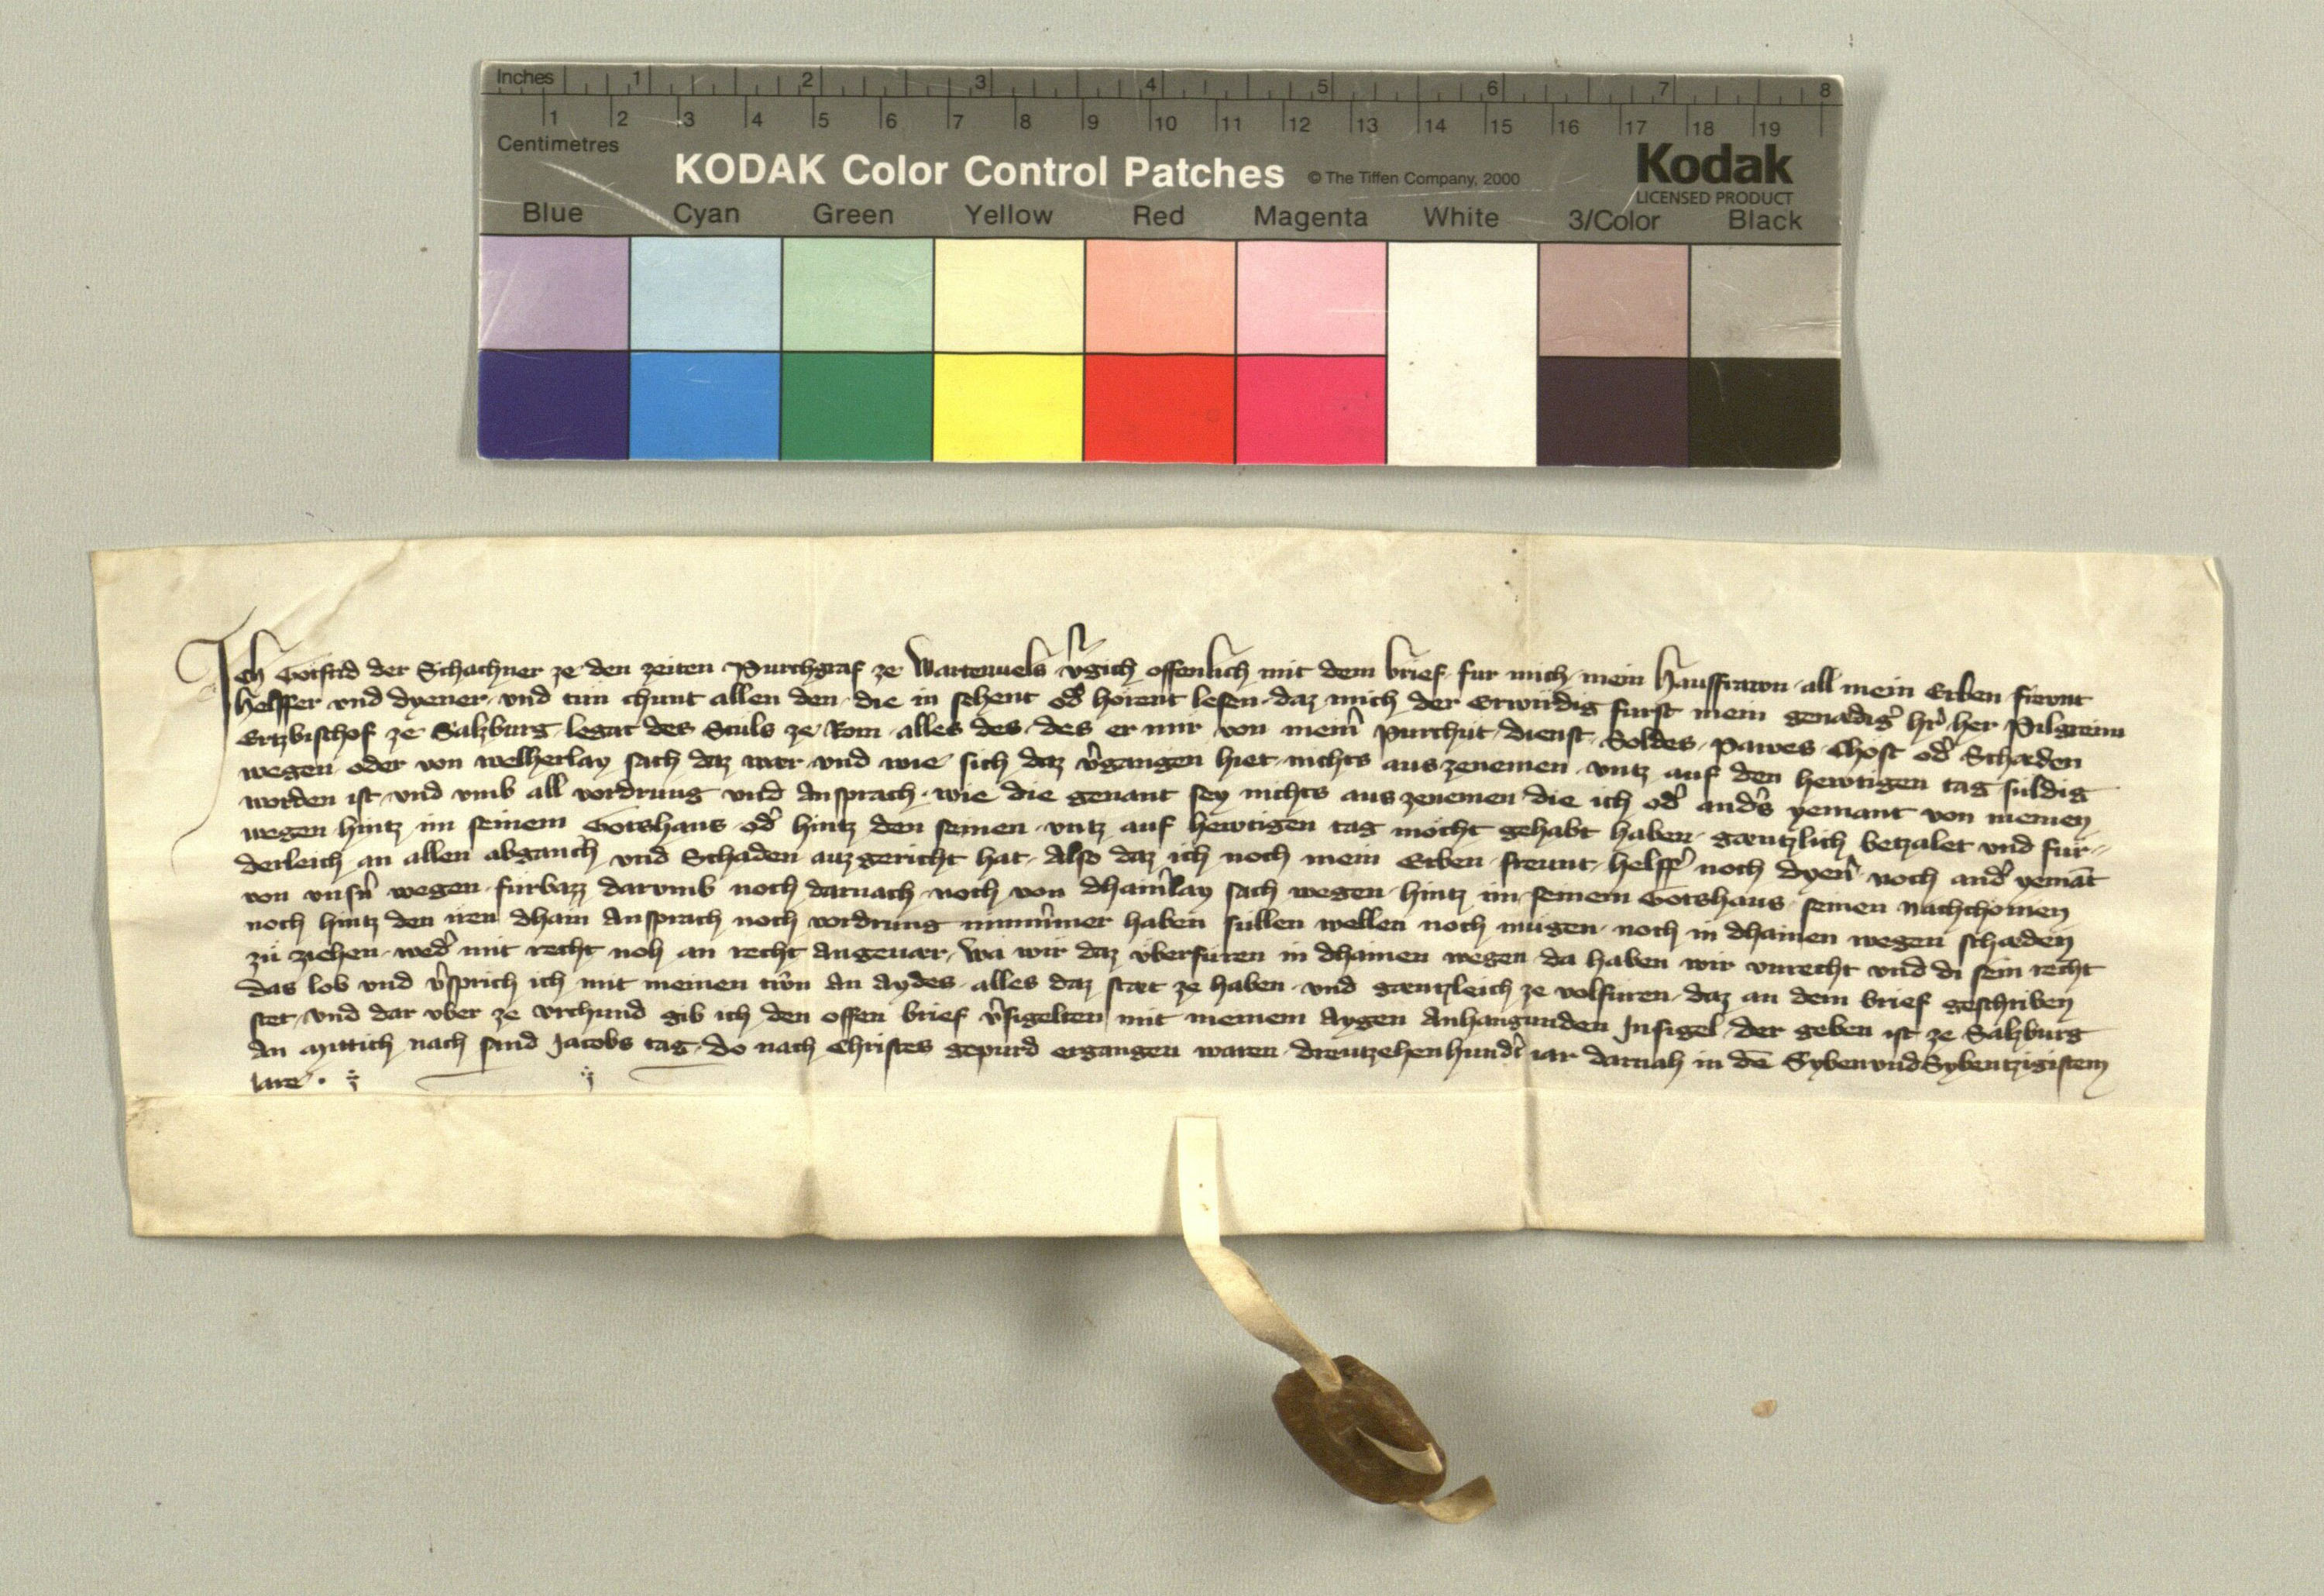 Inches 1 2 3 4 5 6 7 8
1 2 3 4 5 6 7 8 9 10 11 12 13 14 15 16 17 18 19
Centimetres
KODAK Color Control Patches © The Tiffen Company, 2000 Kodak
LICENSED PRODUCT
Blue Cyan Green Yellow Red Magenta White 3/Color Black
Ich Gotfrid der Schachner ze den zeiten Purchgraf ze Wartenuels v̂gich offenlich mit dem brief fur mich mein hausfrawn all mein Erben frewnt
helffer vnd dyener vnd tun chunt allen den die in sehent od̂ hörent lesen daz mich der Erwirdig furst mein genædiĝ hr̂ her Pilgreim
Ertzbischof ze Salzburg legat des Stuls ze Rom alles des des er mir von mein̂ purchut dienst Soldes pawes Chost od̂ Schæden
wegen oder von welherlay sach daz wær vnd wie sich daz v̂gangen hiet nichts auszenemen vntz auf den hewtigen tag suldig
worden ist vnd vmb all vordrung vnd Ansprach wie die genant sey nichts aus zenemen die ich od̂ and̂s yemant von meinen
wegen hintz im seinem Gotshaus od̂ hintz den seinen vntz auf hewtigen tag möcht gehabt haben gæntzlich betzalet vnd fur-
derleich an allen abganch vnd Schaden auzgericht hat Also daz ich noch mein Erben frewnt helff̂ noch dyen̂ noch and̂ yemāt
von vnsn̂ wegen furbazz darumb noch darnach noch von dhain̂lay sach wegen hintz im seinem Gotshaus seinen nachchomen
noch hintz den iren dhain Ansprach noch vordrung nimm̂mer haben sullen wellen noch mugen noch in dhainen wegen schæden
zu ziehen wed̂ mit recht noh an recht Angeuær Wa wir daz vberfuren in dhainen wegen da haben wir vnrecht vnd di sein recht
das lob vnd v̂sprich ich mit meinen trŵn An Aydes alles daz stæt ze haben vnd gæntzleich ze volfuren daz an dem brief geschriben
stet vnd dar vber ze vrchund gib ich den offen brief v̂sigelten mit meinem Aygen Anhangunden Insigel der geben ist ze Salzburg
An Mittich nach sand Jacobs tag do nach Christes gepurd ergangen waren drewtzehenhund̂t iar darnah in dē Sybenvndsybentzigistem
Iare